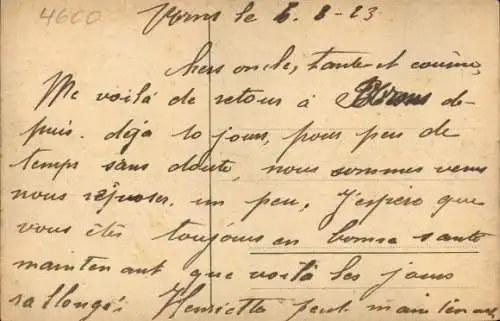 4600
le 6. 8-23
chers oncle, tante et cousine,
Me voilà de retour à de-
puis. déjà 10 jours, pour peu de
temps sans doute, nous sommes venus
nous reposer. un peu, J'espère que
vous êtes toujours en bonne santé
maintenant que voilà les jours
rallongé. Henriette peut maintenant